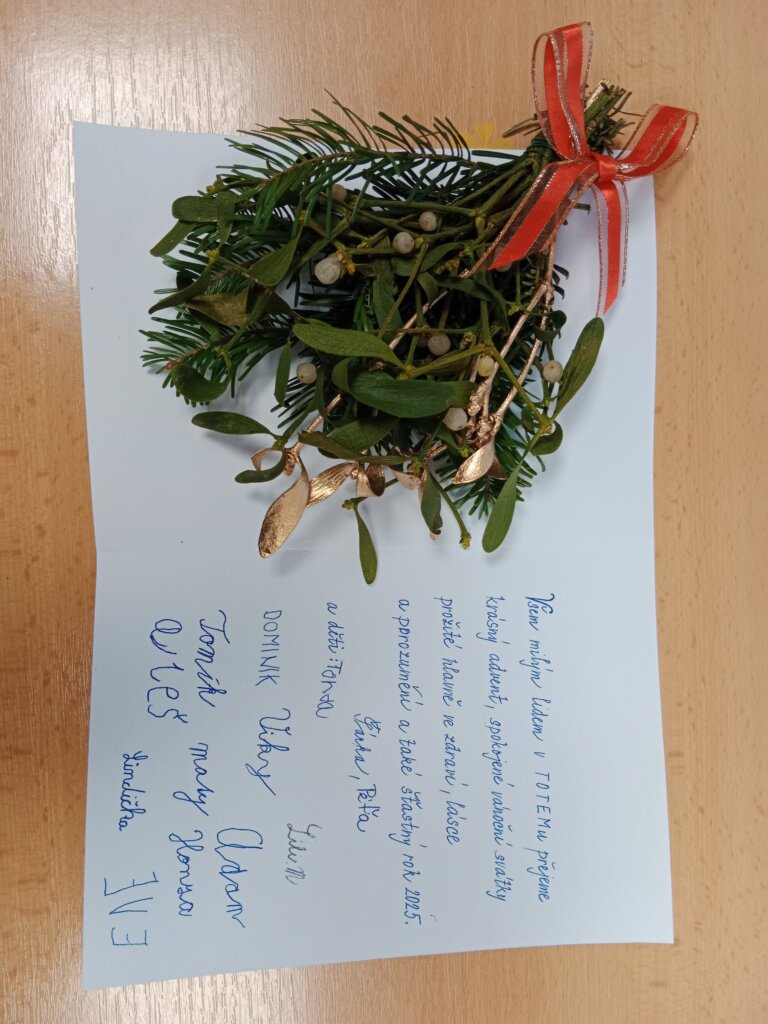 Všem milým lidem v TOTEMu přejeme
krásný advent, spokojené vánoční svátky
prožité hlavně ve zdraví, lásce
a porozumění a také šťastný rok 2025.
Šárka, Peťa
a děti: Tonda
DOMINIK Viky Lili.M
Tomík malý Adam
Aleš Honza
Lindička
EVE